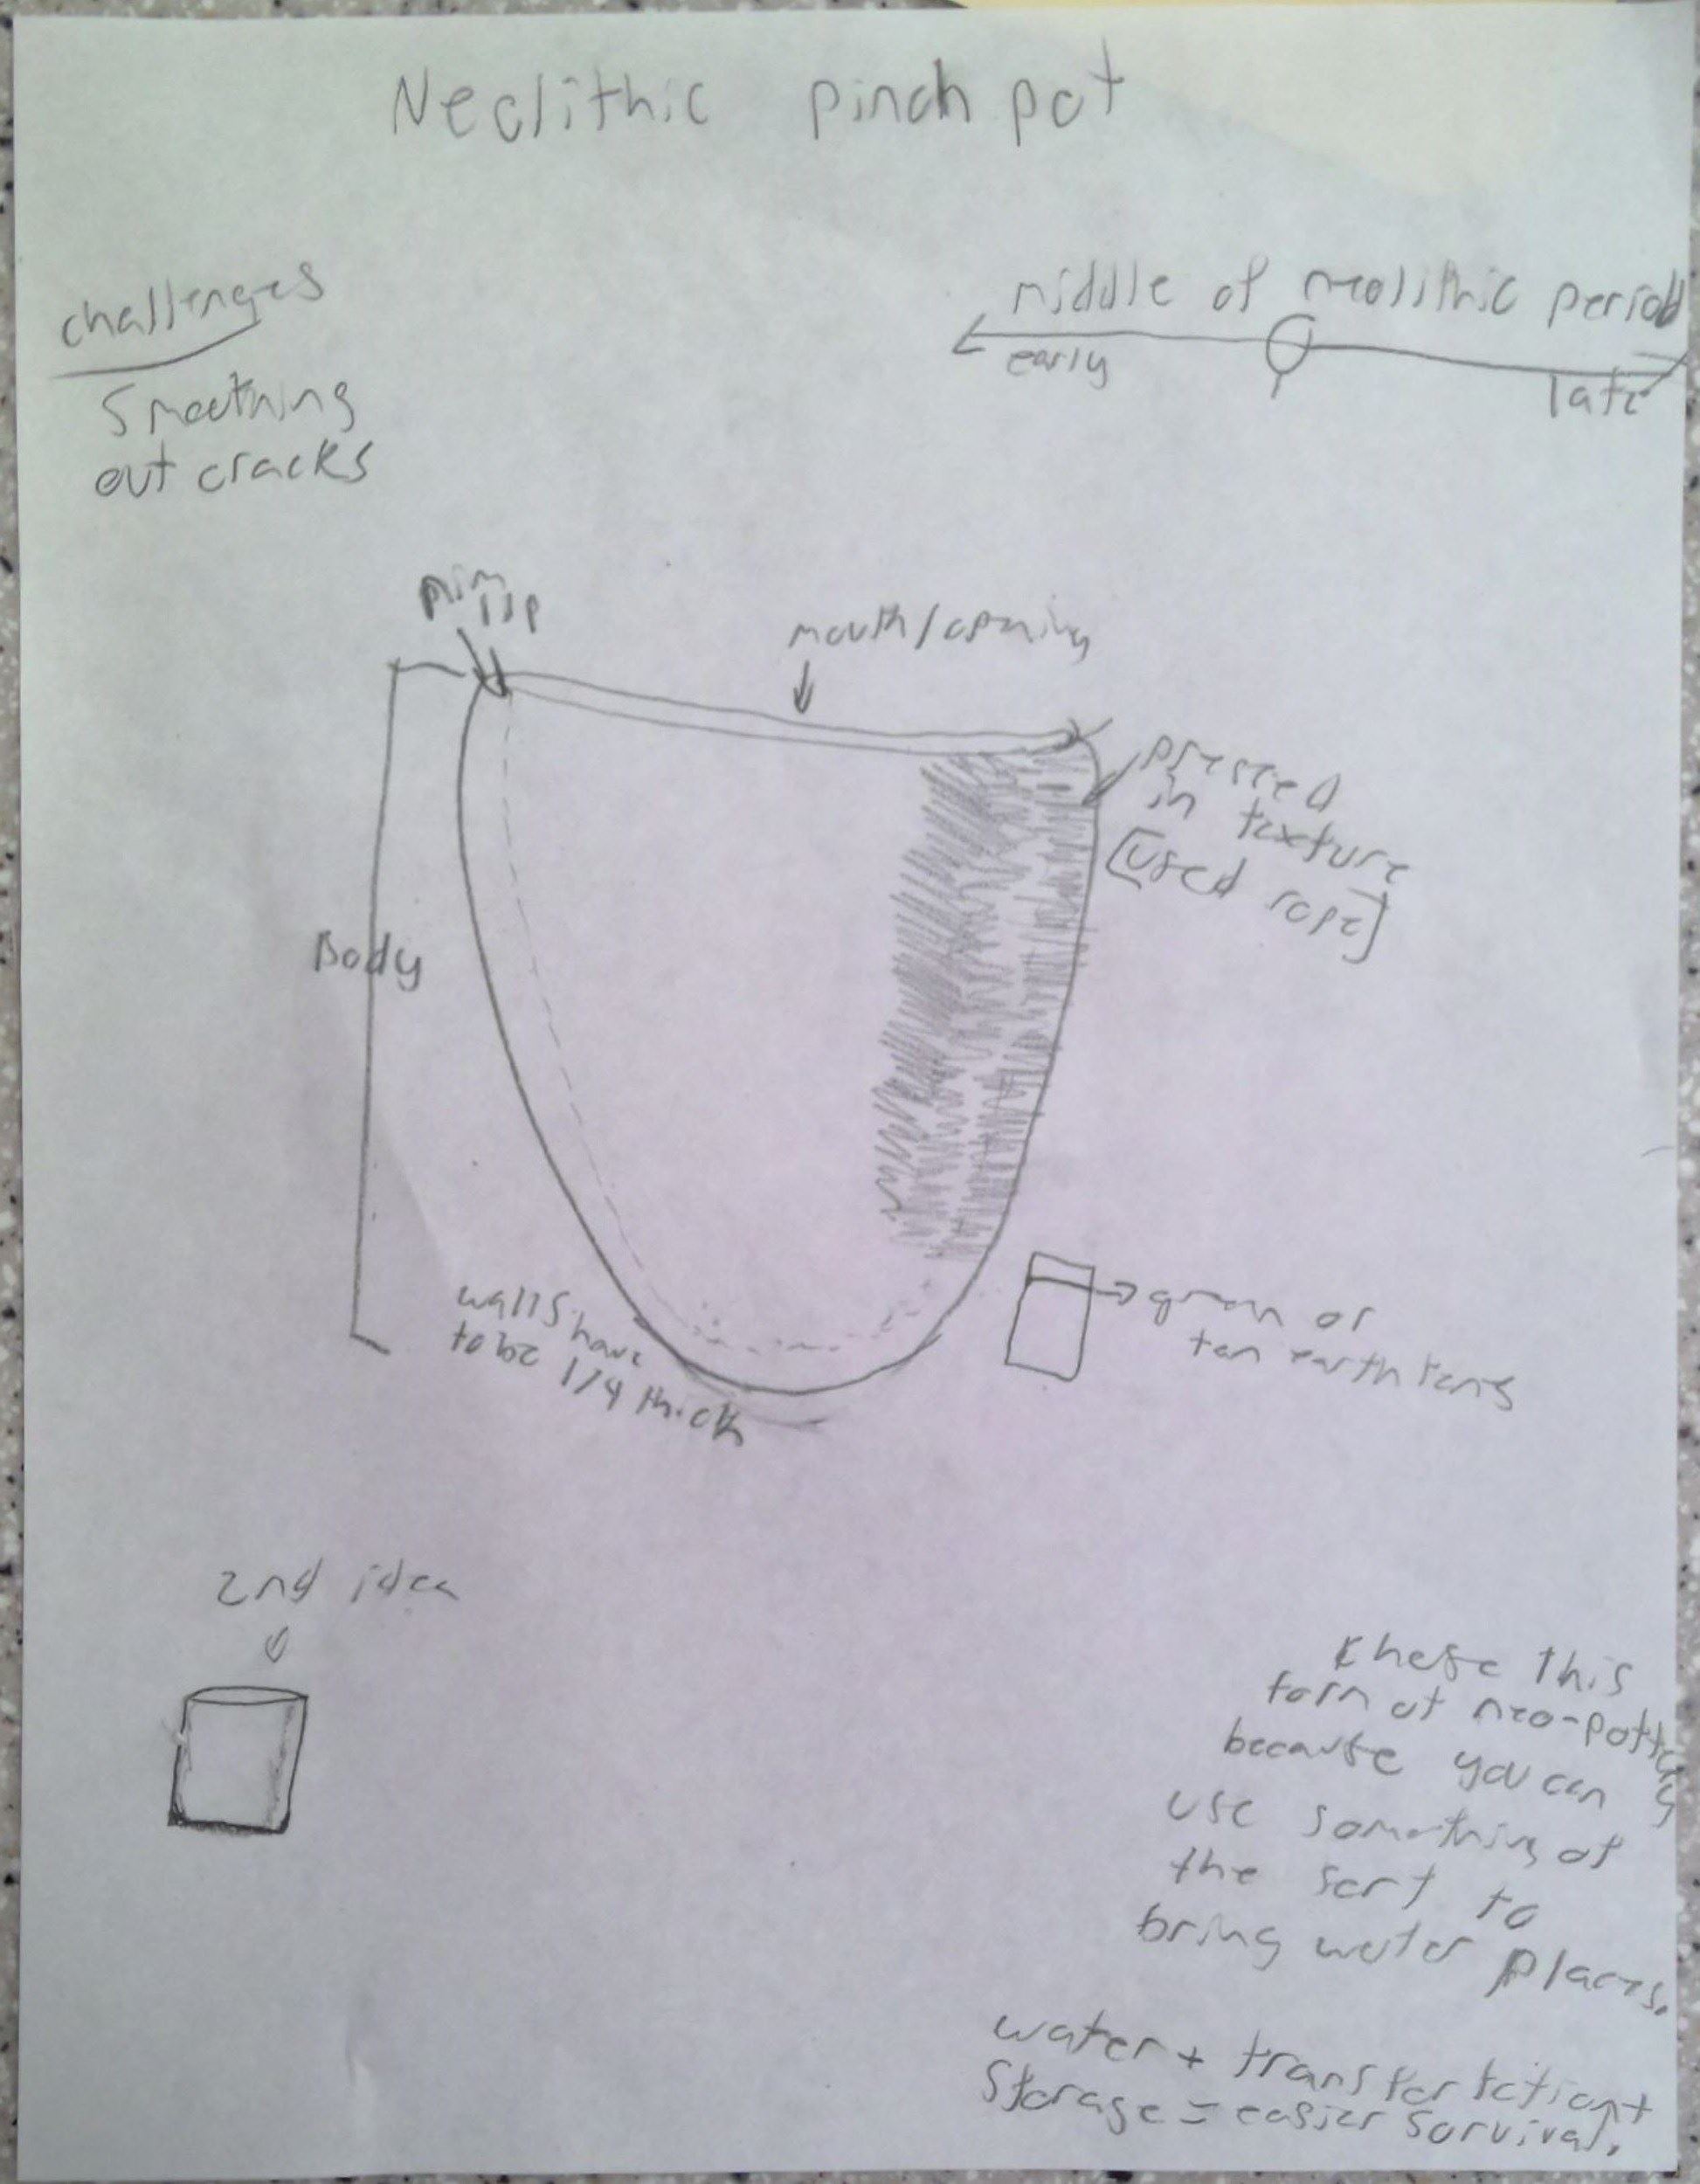 Neolithic pinch pot
challenges
Smoothing
out cracks
middle of neolithic period
early
late
lip
mouth/opening
pressed
in texture
[used rope]
Body
walls have
to be 1/4 thick
or
tan earth tons
2nd idea
this
form of neo-pottery
because you can
use something of
the sort to
bring water places.
water + transportation+
Storage = easier survival.